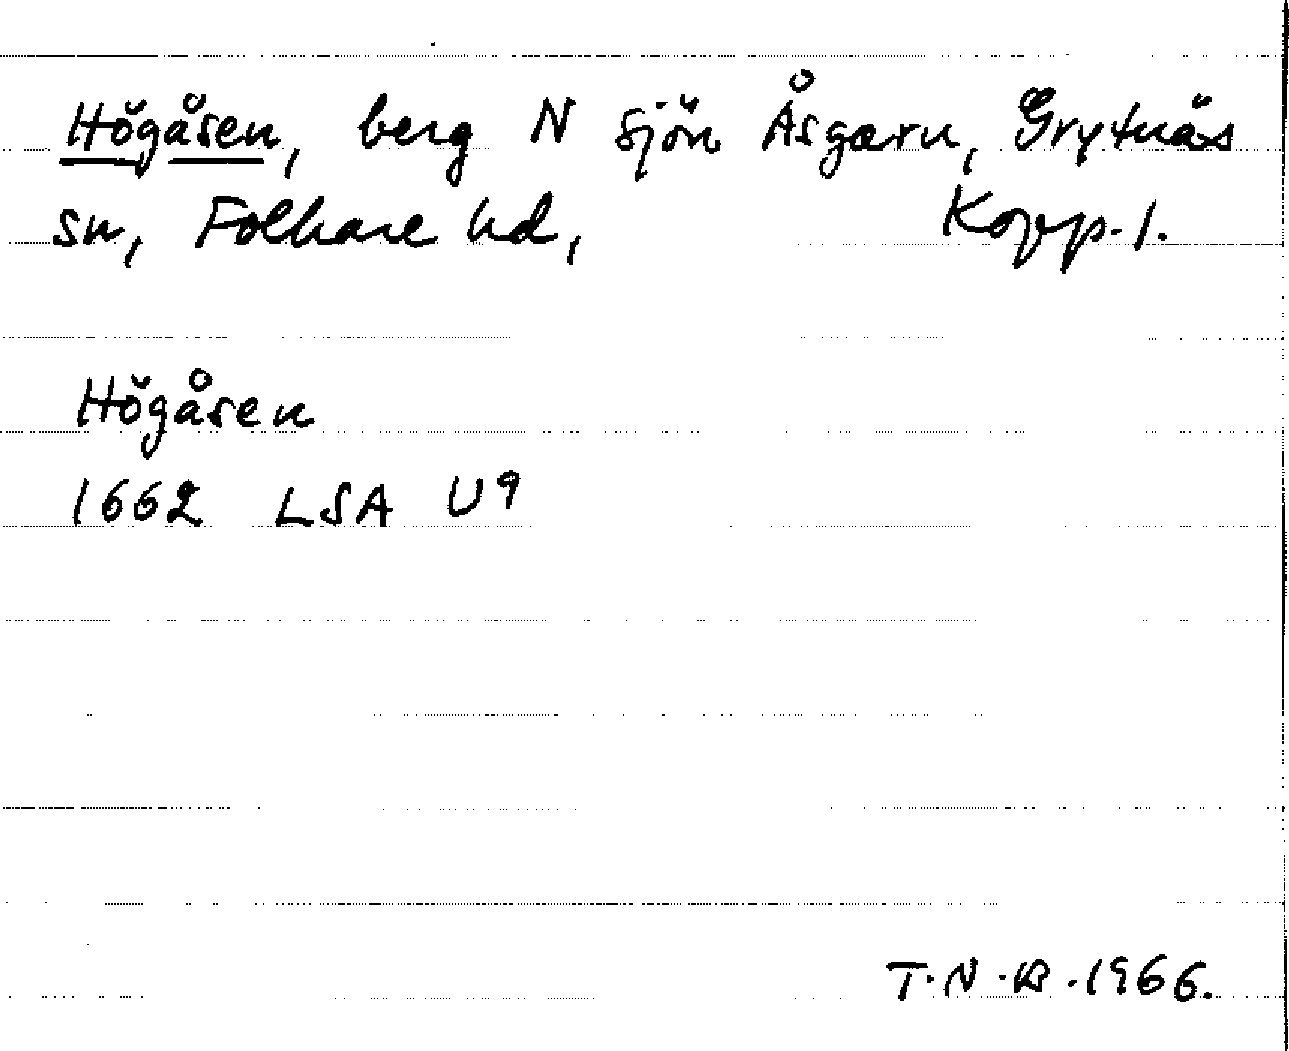 Högåsen, berg N sjön Åsgarn, Grytnäs
sn, Folkare hd, Kopp. l.
Högåsen
1662 LSA U9
T.N.B. 1966.